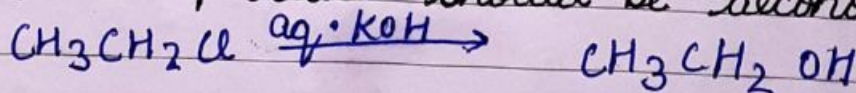 be
CH3CH2Cl aq. KOH → CH3CH2OH